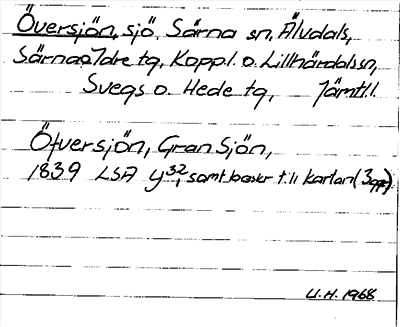 Översjön, sjö, Särna sn, Älvdals,
Särna o. Idre tg, Kopp. l. o. Lillhärdals sn,
Svegs o. Hede tg, Jämtl. l.
Öfversjön, Gran Sjön,
1839 LSA Y32/1 samt beskr till kartan (3 ggr)
U.H. 1968